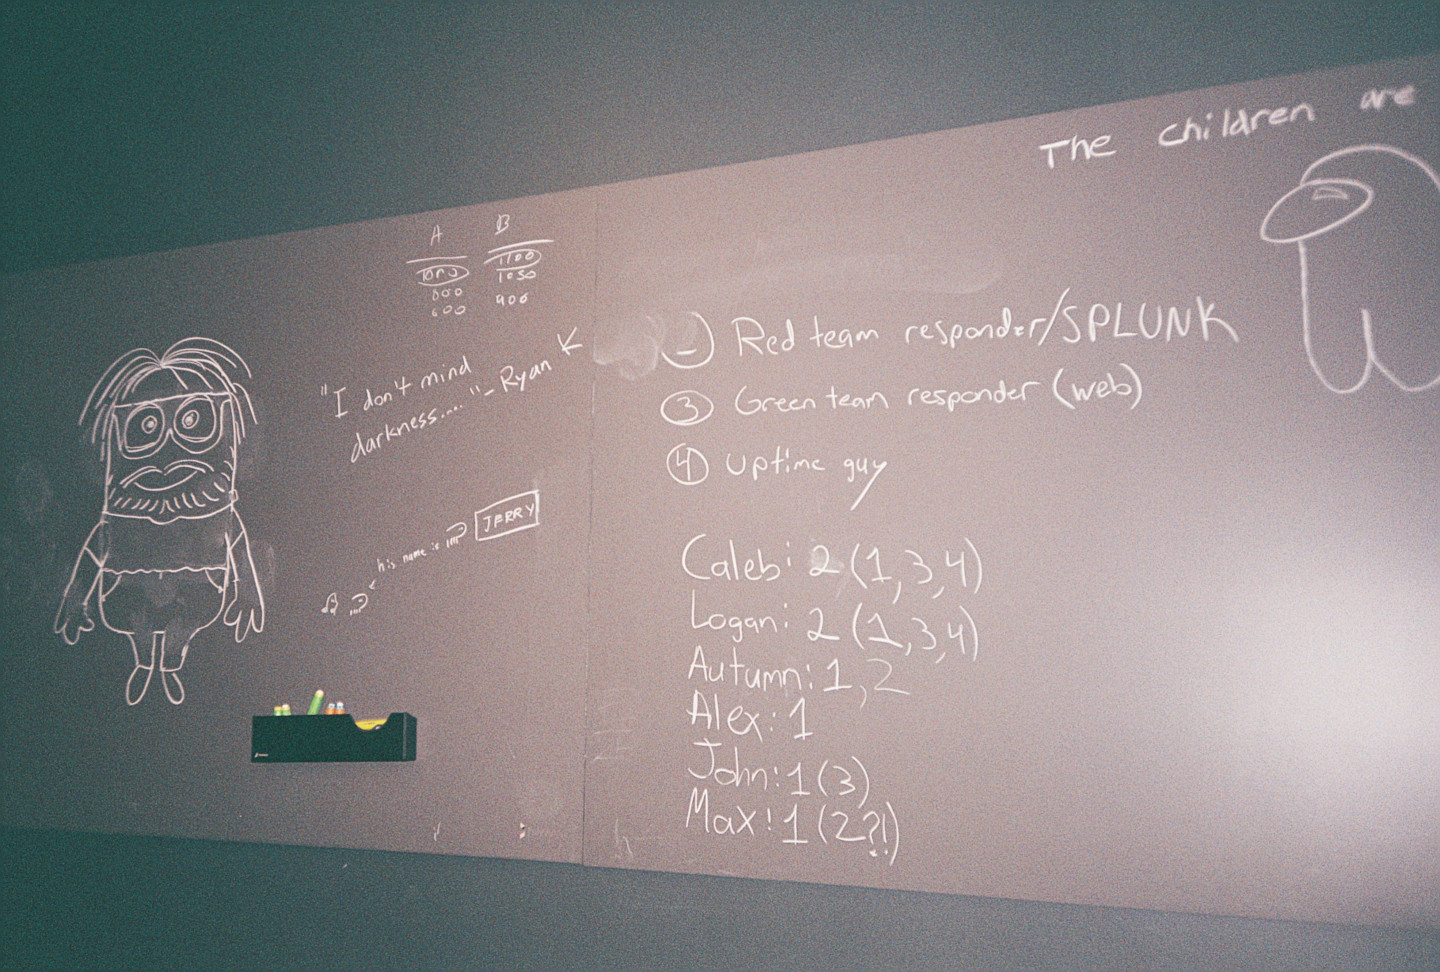 The children are
A B
1100
1050
000 900
600
"I don't mind
darkness...." - Ryan
his name is
JERRY
Red team responder/SPLUNK
3 Green team responder (web)
4 uptime guy
Caleb: 2 (1,3,4)
Logan: 2 (1,3,4)
Autumn: 1,2
Alex: 1
John: 1 (3)
Max: 1 (2?!)